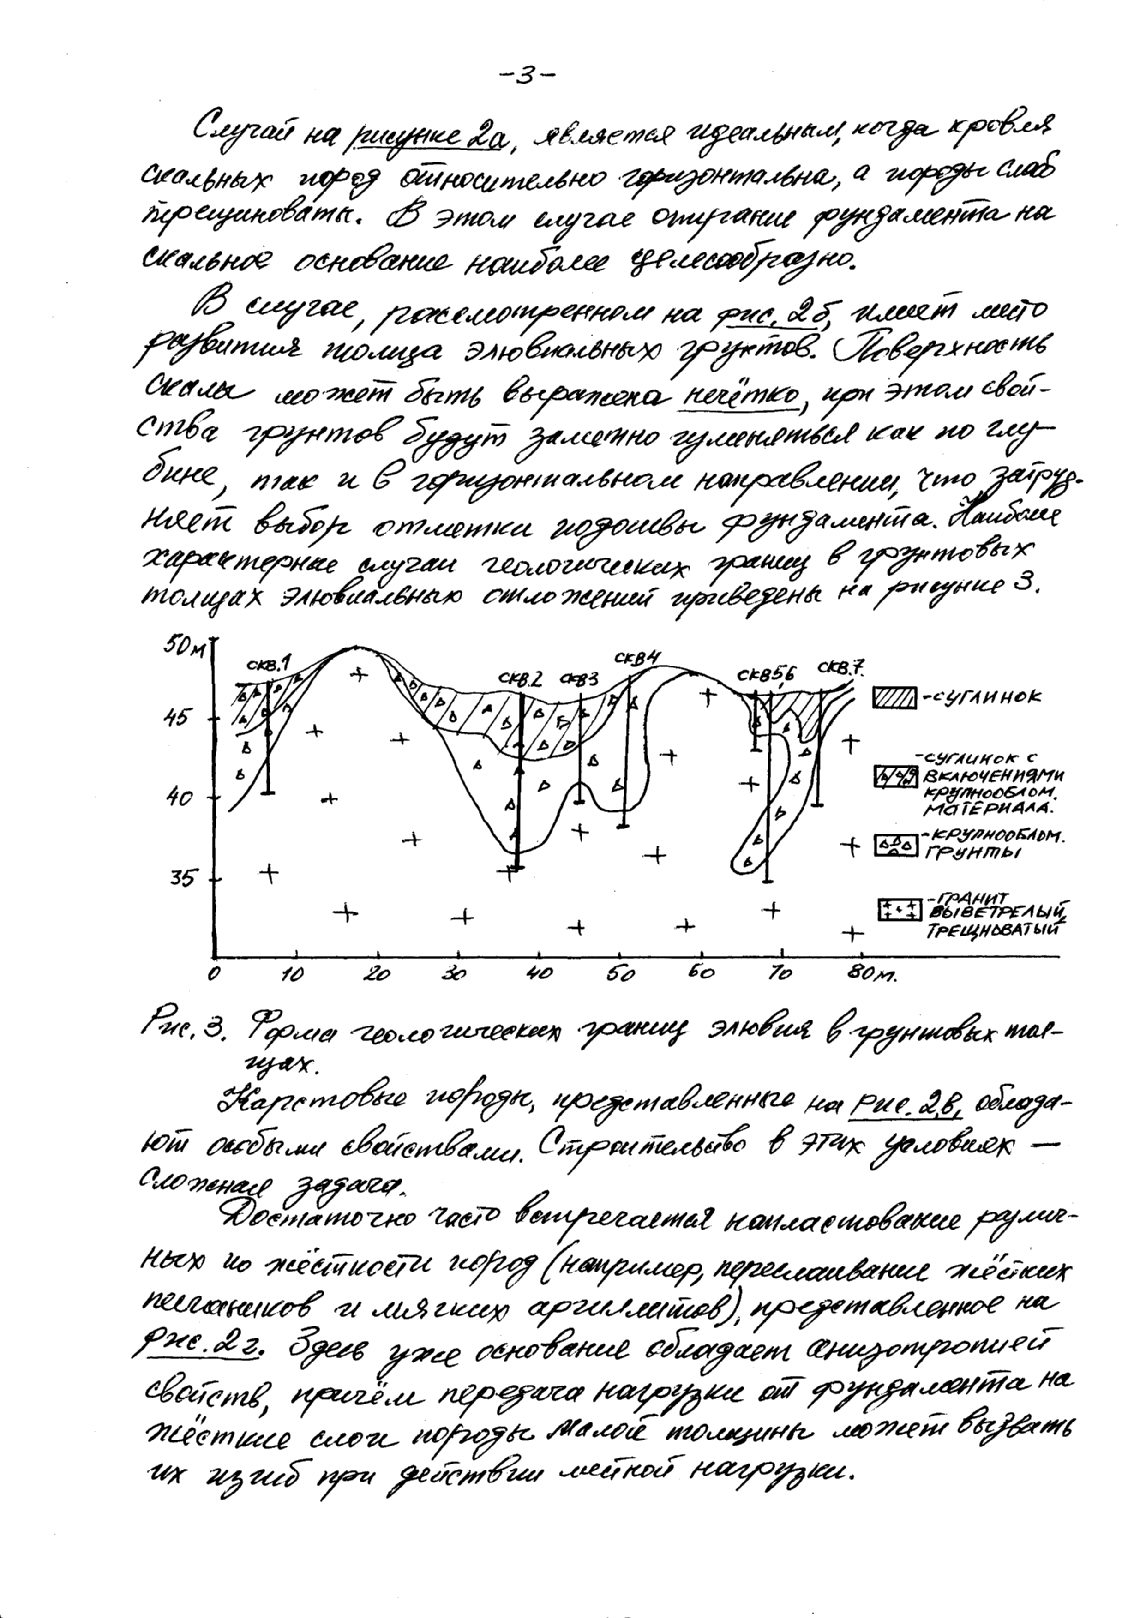 -3-
Случай на рисунке 2а, является идеальным, когда кровля
скальных пород относительно горизонтальна, а породы слабо
трещиноваты. В этом случае опирание фундамента на
скальное основание наиболее целесообразно.
В случае, рассмотренном на рис. 2б, имеет место
развития толща элювиальных грунтов. Поверхность
скалы может быть выражена нечётко, при этом свой-
ства грунтов будут заметно изменяться как по глу-
бине, так и в горизонтальном направлении, что затруд-
няет выбор отметки подошвы фундамента. Наиболее
характерные случаи геологических границ в грунтовых
толщах элювиальных отложений приведены на рисунке 3.
50м
45
40
35
0 10 20 30 40 50 60 70 80м.
скв.1
скв.2
скв3
скв4
скв5,6
скв.7.
-суглинок
-суглинок с
включениями
крупнооблом.
материала.
-крупнооблом.
грунты
-гранит
выветрелый,
трещноватый
Рис. 3. Форма геологических границ элювия в грунтовых тол-
щах.
Карстовые породы, представленные на рис. 2в, облада-
ют особыми свойствами. Строительство в этих условиях —
сложная задача.
Достаточно часто встречается напластование различ-
ных по жёсткости пород (например, переслаивание жёстких
песчаников и мягких аргиллитов), представленное на
рис. 2г. Здесь уже основание обладает анизотропией
свойств, причём передача нагрузки от фундамента на
жёсткие слои породы малой толщины может вызвать
их изгиб при действии местной нагрузки.